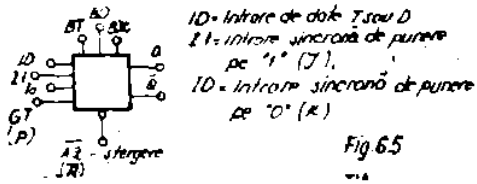 BT
ID
I1
I0
GT
(P)
Q
Q̄
A̅Z̅ - stergere
(R̅)
ID = Intrare de date T sau D
I1 = intrare sincronă de punere
pe "1" (J),
ID = Intrare sincronă de punere
pe "0" (K)
Fig. 6.5